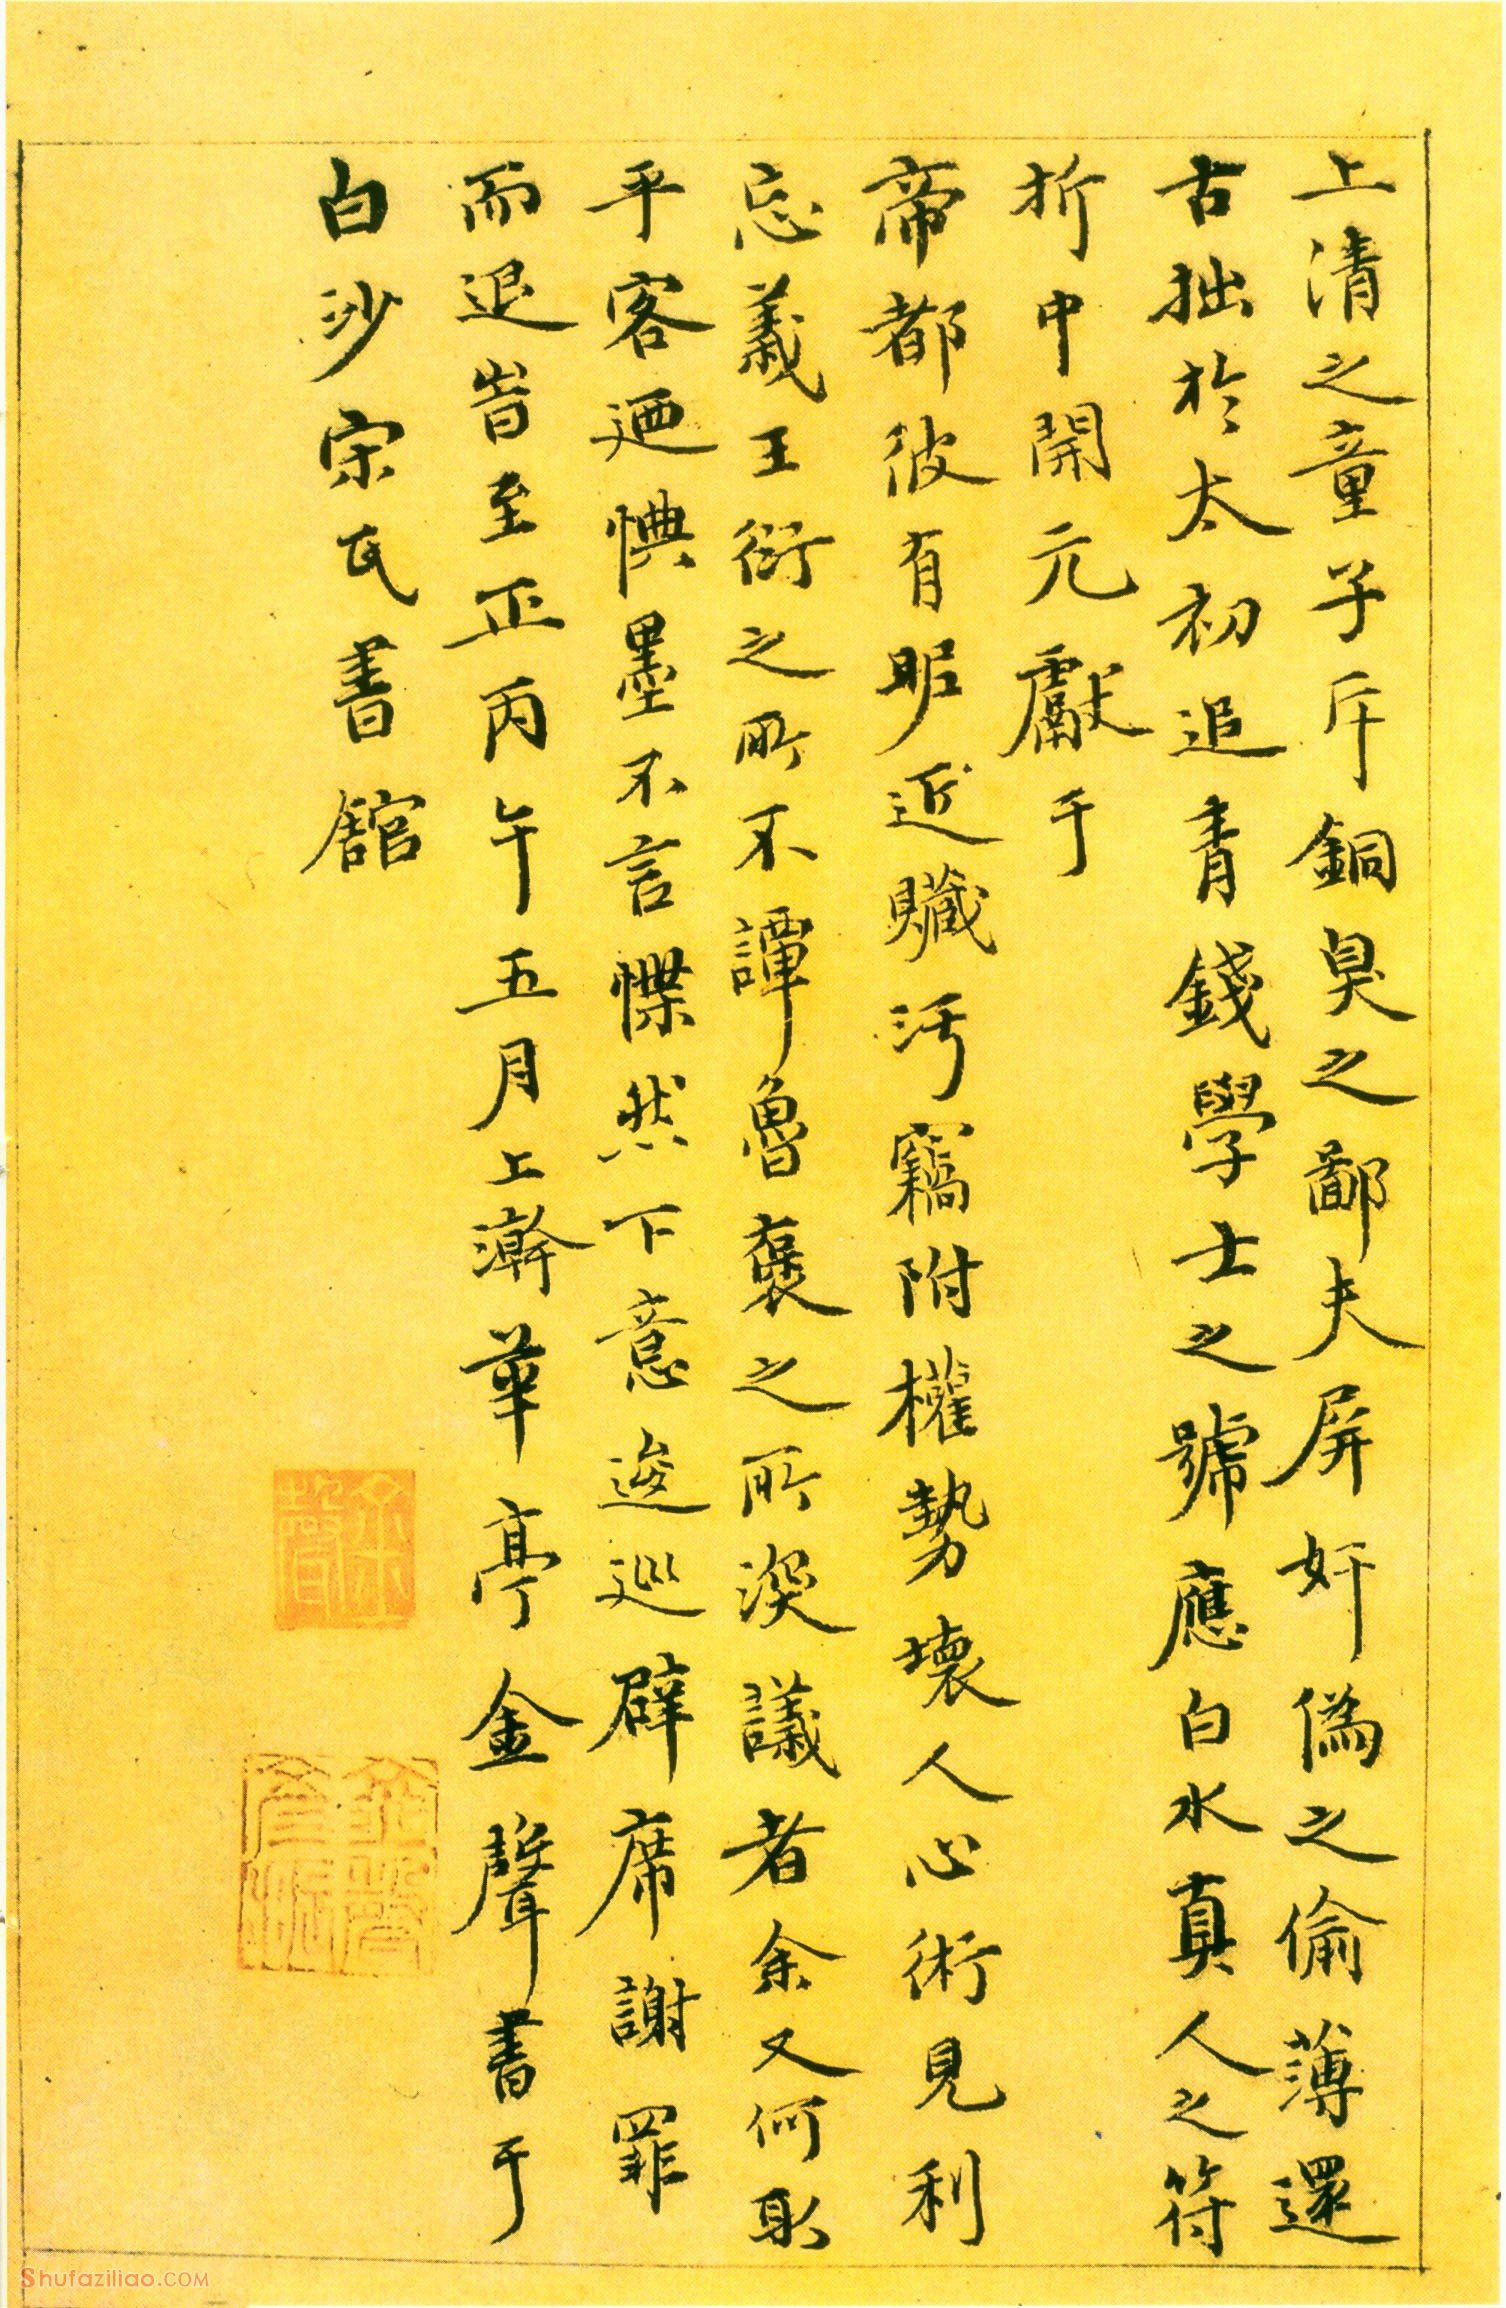 上清之童子斥銅臭之鄙夫屏奸偽之偷薄還
古拙於太初追青錢學士之號應白水真人之符
折中開元獻于
帝都彼有昵近贓汚竊附權勢壞人心術見利
忘義王衍之所不譚魯褒之所深議者余又何取
乎客迺愧墨不言慄然下意逡巡辟席謝罪
而退旹至正丙午五月上澣華亭金聲書于
白沙宗氏書舘
金聲
Shufaziliao.COM